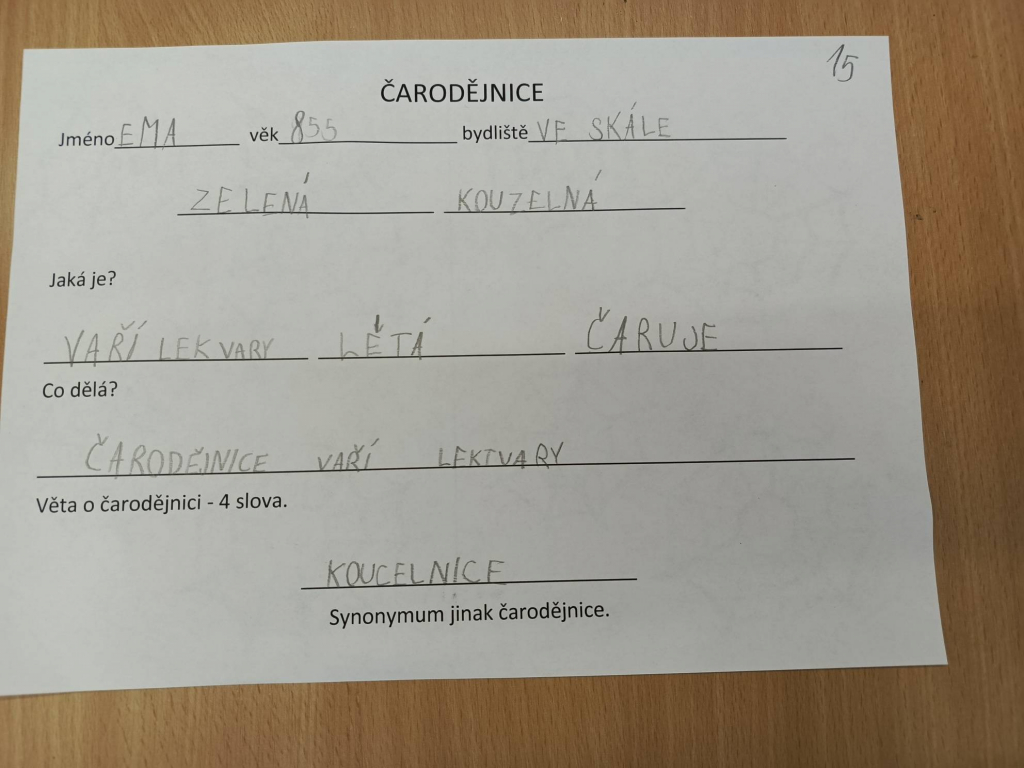 15
ČARODĚJNICE
Jméno EMA věk 855 bydliště VE SKÁLE
ZELENÁ KOUZELNÁ
Jaká je?
VAŘÍ LEKVARY LÉTÁ ČARUJE
Co dělá?
ČARODĚJNICE VAŘÍ LEKTVARY
Věta o čarodějnici - 4 slova.
KOUCELNÍCE
Synonymum jinak čarodějnice.